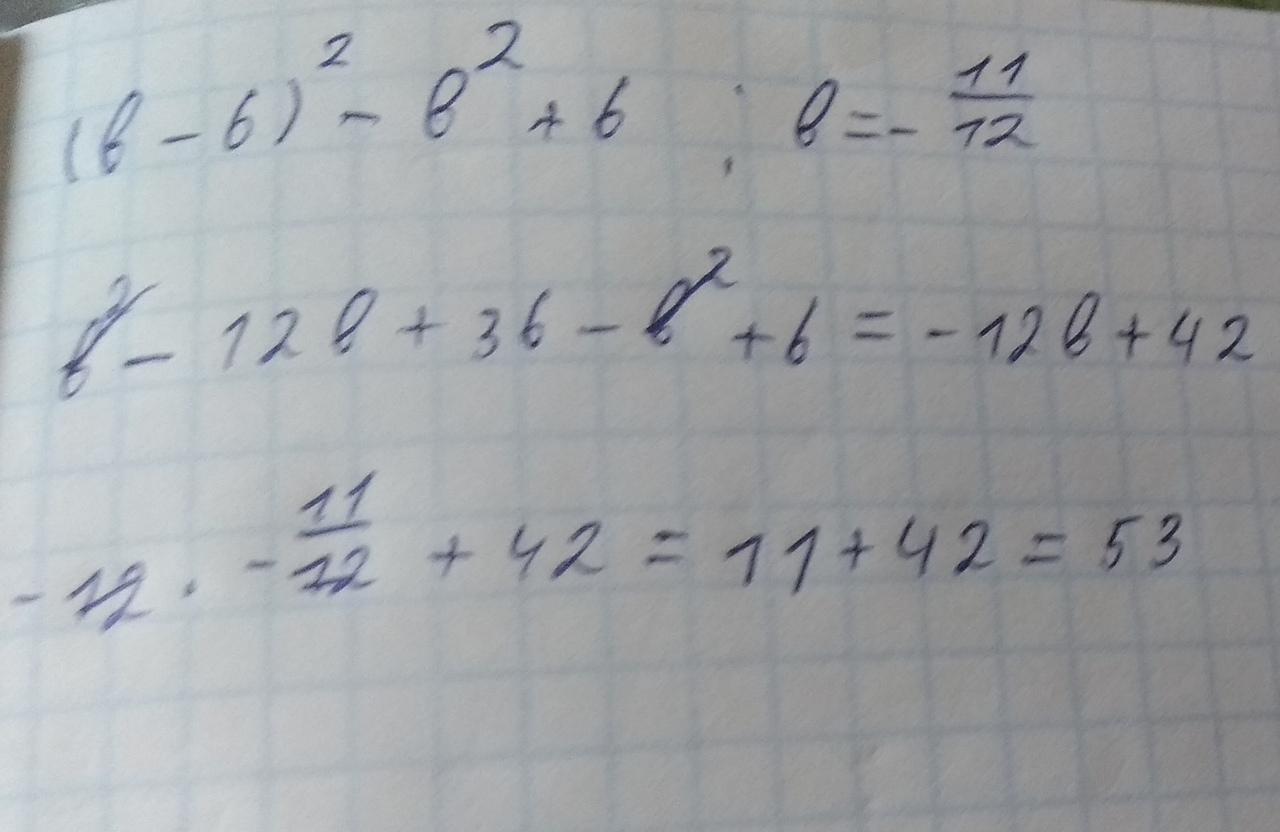 (b - 6)² - b² + 6 ; b = - 11/12
b² - 12b + 36 - b² + 6 = -12b + 42
-12 · - 11/12 + 42 = 11 + 42 = 53